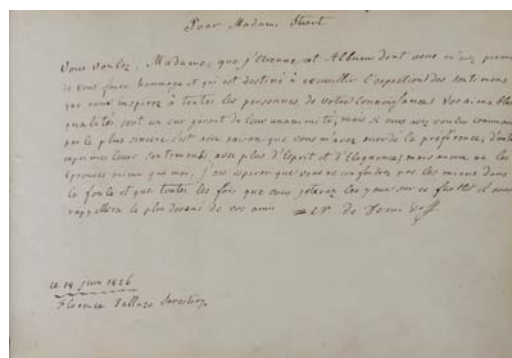 Pour Madame Stuart
Vous voulez, Madame, que j'étrenne cet Album dont vous m'avez permis
de vous faire hommage et qui est destiné à recueillir l'expression des sentimens
que vous inspirez à toutes les personnes de votre connoissance. Vos aimables
qualités sont un sur garant de leur unanimité, mais si vous avez voulu commencer
par le plus sincère c'est avec raison que vous m'avez accordé la préférence, d'autres
exprimeront leurs sentiments avec plus d'Esprit et d'Elegance; mais aucun ne les
éprouve mieux que moi, j'ose espérer que vous ne confondrez pas les miens dans
la foule et que toutes les fois que vous jeterez les yeux sur ce feuillet il vous
rappellera le plus dévoué de vos amis
ce 18 juin 1826
Florence Palazzo